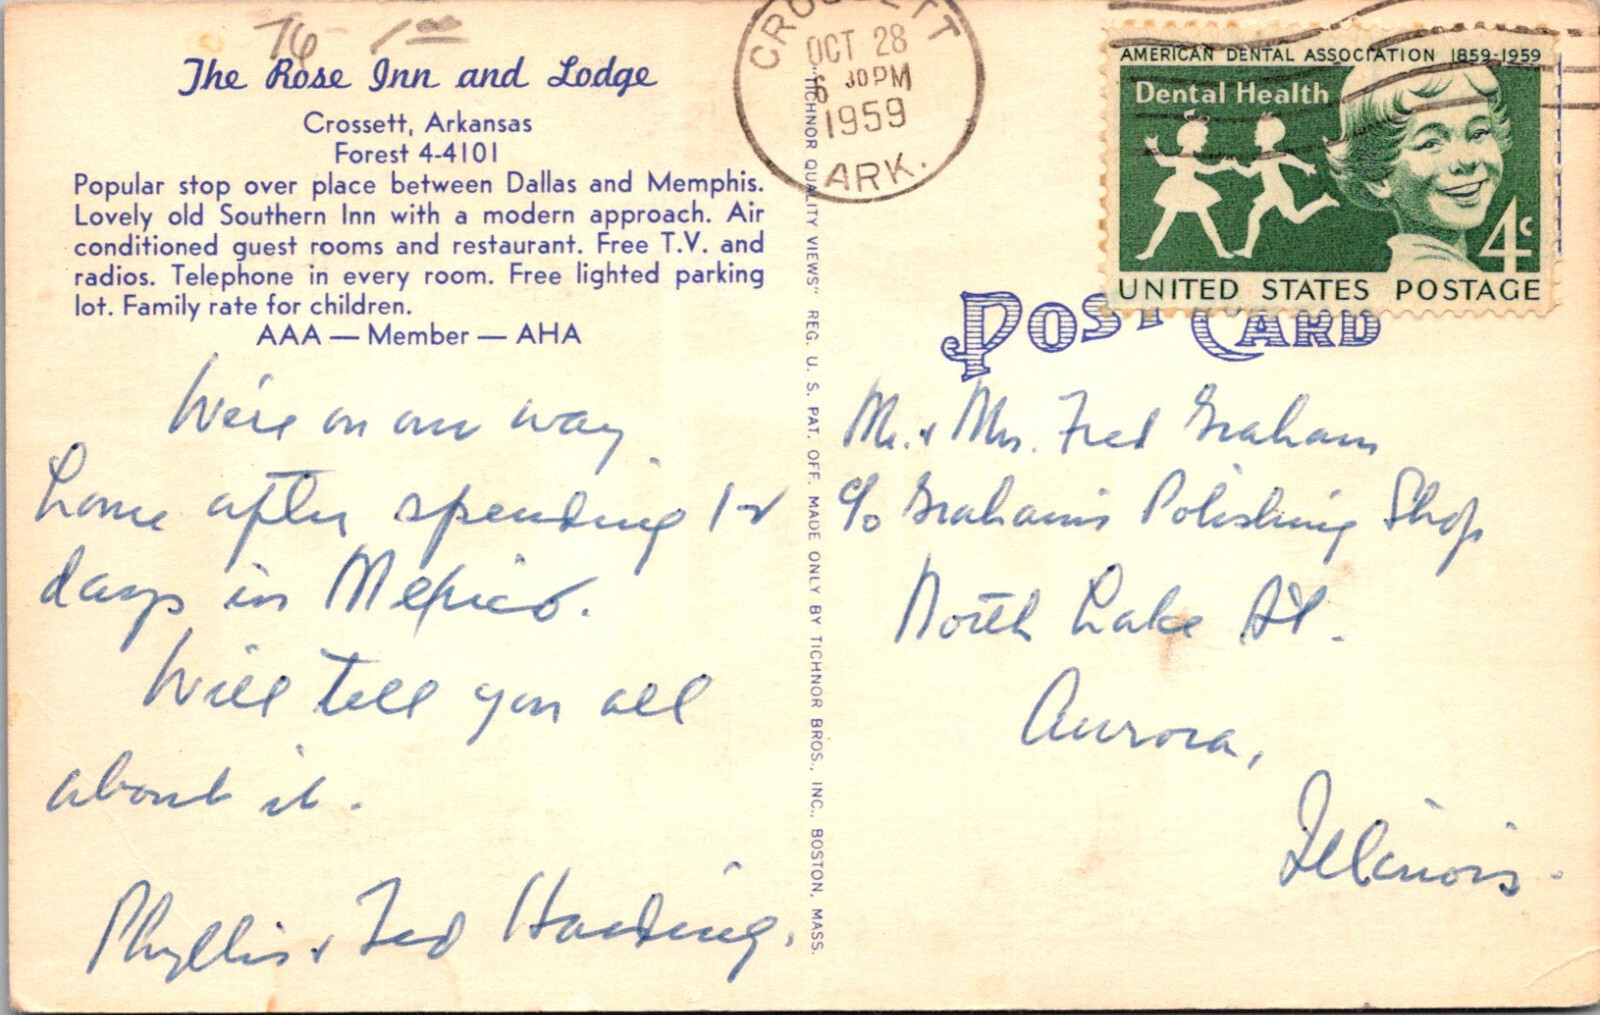 76 - 1.00
The Rose Inn and Lodge
Crossett, Arkansas
Forest 4-4101
Popular stop over place between Dallas and Memphis.
Lovely old Southern Inn with a modern approach. Air
conditioned guest rooms and restaurant. Free T.V. and
radios. Telephone in every room. Free lighted parking
lot. Family rate for children.
AAA — Member — AHA
We're on our way
home after spending 12
days in Mexico.
Will tell you all
about it.
Phyllis & Ted Harding.
"TICHNOR QUALITY VIEWS" REG. U. S. PAT. OFF. MADE ONLY BY TICHNOR BROS., INC., BOSTON, MASS.
CROSSETT
OCT 28
6 30PM
1959
ARK.
AMERICAN DENTAL ASSOCIATION 1859-1959
Dental Health
4c
UNITED STATES POSTAGE
POST CARD
Mr. & Mrs. Fred Graham
c/o Graham's Polishing Shop
North Lake St.
Aurora,
Illinois.